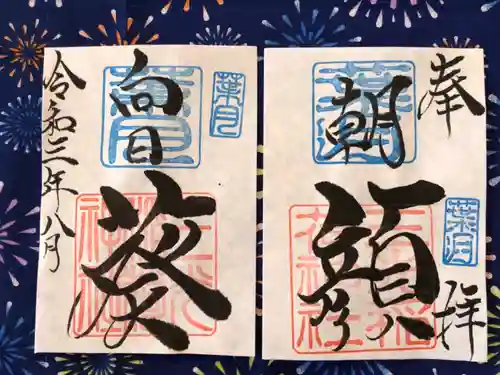 奉拝
葉月
朝顔
葉月
向日葵
令和三年八月